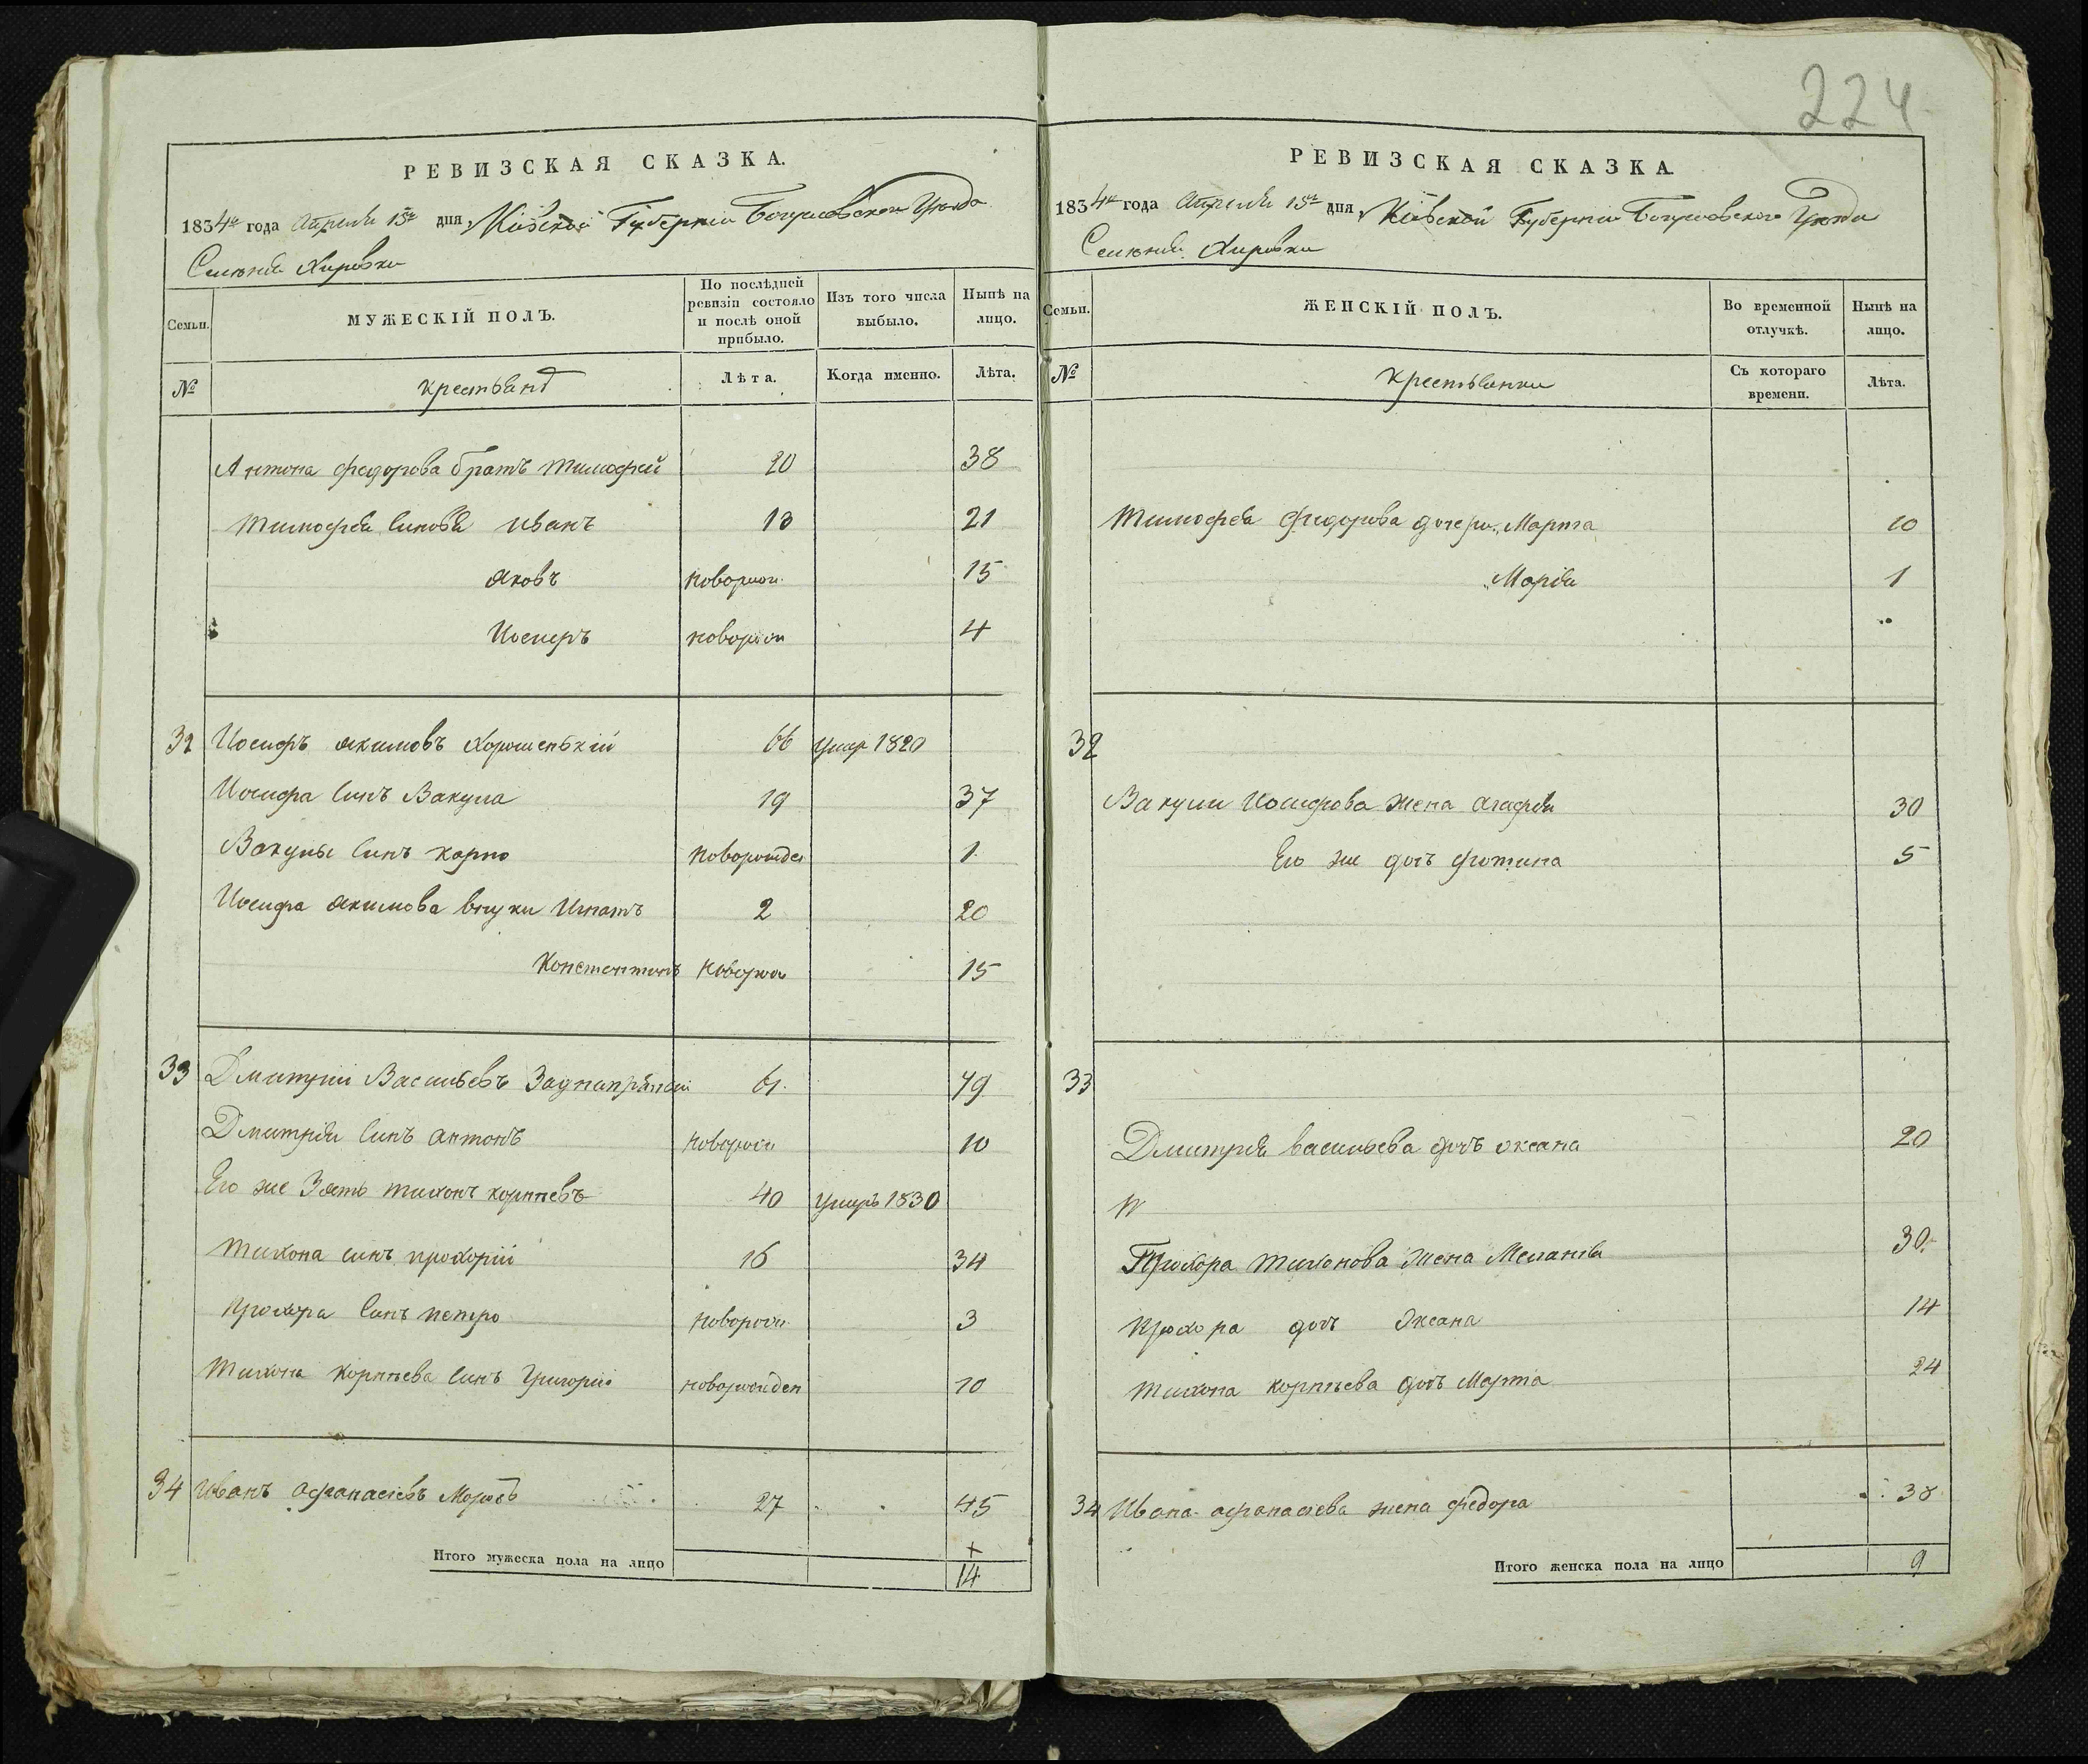 224
РЕВИЗСКАЯ СКАЗКА.
1834го года Апреля 15го дня, Кіевской Губерніи Богуславского Уезда
Селенія Хировки
Семьи.
МУЖЕСКІЙ ПОЛЪ.
По послѣдней ревизіи состояло и послѣ оной прибыло.
Изъ того числа выбыло.
Нынѣ на лицо.
№
крестьянъ
Лѣта.
Когда именно.
Лѣта.
Антона федорова братъ тимофей 20 38
тимофея синовя иванъ 13 21
яковъ новорож. 15
Иосифъ новорож 4
32 Иосифъ якимовъ Хорошенькій 66 умер 1820
Иосифа синъ Вакула 19 37
Вакулы синъ карпо новорожде 1
Иосифа якимова внуки Игнатъ 2 20
Константинъ новорож 15
33 Дмитрій Васильевъ 61. 79
Дмитрія синъ антонъ новорож 10
Его же Зять тихонъ корнѣевъ 40 умеръ 1830
тихона синъ прохорій 16 34
прохора синъ петро новорож 3
тихона корнѣева синъ Григорій новорожден 10
34 Иванъ афанасіевъ 27 45
Итого мужеска пола на лицо 14
РЕВИЗСКАЯ СКАЗКА.
1834го года Апреля 15го дня, Кіевской Губерніи Богуславского Уезда
Селенія Хировки
Семьи.
ЖЕНСКІЙ ПОЛЪ.
Во временной отлучкѣ.
Нынѣ на лицо.
№
крестьянки
Съ котораго времени.
Лѣта.
тимофея федорова дочери Марта 10
Марія 1
32
Вакулы Иосифова жена агафія 30
Его же дочъ фотина 5
33
Дмитрія васильева дочъ оксана 20
Прохора тихонова жена Меланія 30.
прохора дочъ Оксана 14
тихона корнѣева дочъ Марта 24
34 Ивана афанасіева жена федора 38
Итого женска пола на лицо 9